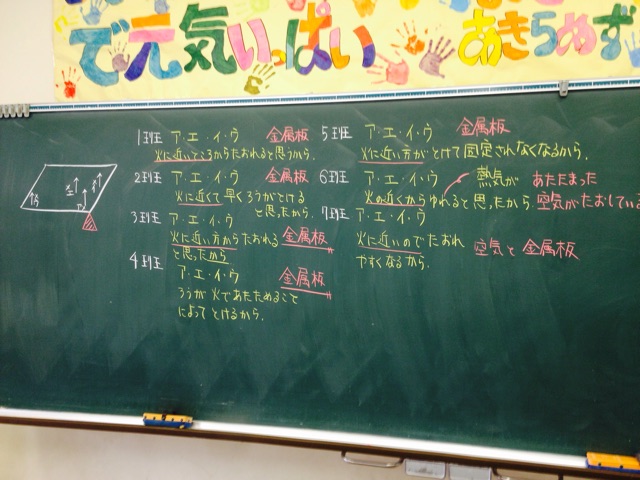 で元気いっぱい あきらめず
1班 ア・エ・イ・ウ 金属板
火に近いところからたおれると思うから。
2班 ア・エ・イ・ウ 金属板
火に近くて早くろうがとける
と思ったから。
3班 ア・エ・イ・ウ
火に近い方からたおれる 金属板
と思ったから
4班
ア・エ・イ・ウ 金属板
ろうが火であたためること
によってとけるから。
5班 ア・エ・イ・ウ 金属板
火に近い方がとけて固定されなくなるから。
6班 ア・エ・イ・ウ 熱気が あたたまった
火の近くからゆれると思ったから。空気がたおしている
7班 ア・エ・イ・ウ
火に近いのでたおれ 空気と金属板
やすくなるから。